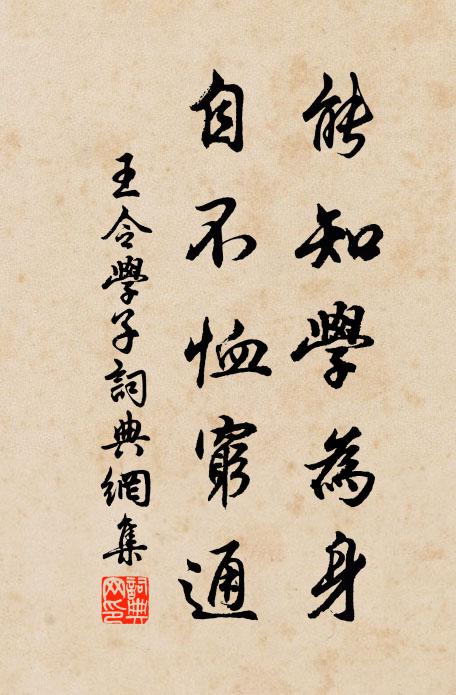 能知學為身
自不恤窮通
王令學子詞典網集
詞典网印